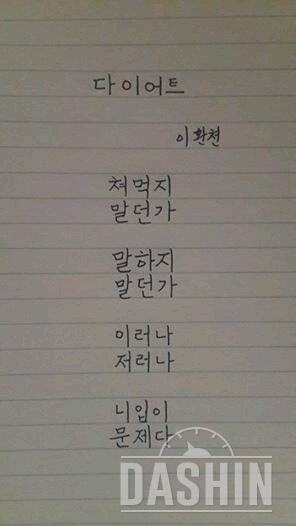 다이어트
이환천
쳐먹지
말던가
말하지
말던가
이러나
저러나
니입이
문제다
DASHIN